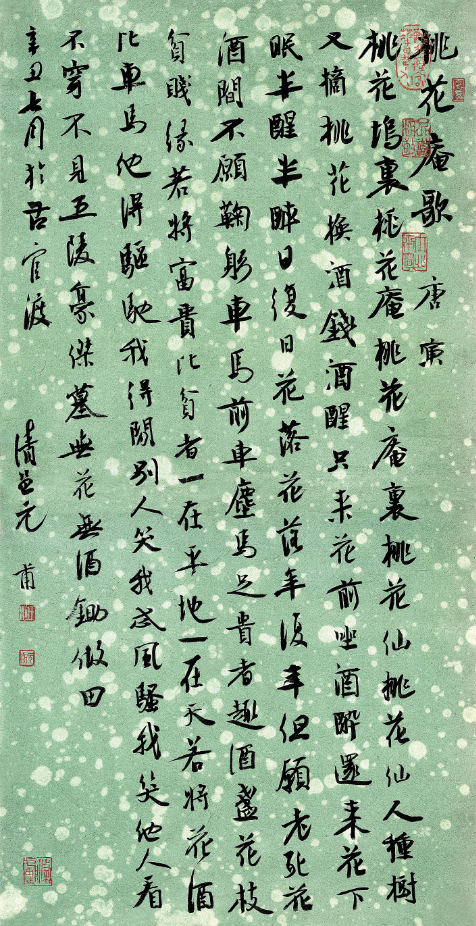 桃花庵歌 唐寅
桃花塢裏桃花庵桃花庵裏桃花仙桃花仙人種樹
又摘桃花換酒錢酒醒只来花前坐酒醉還来花下
眠半醒半醉日復日花落花落年復年但願老死花
酒間不願鞠躬車馬前車塵馬足貴者趣酒盞花枝
貧賤緣若將富貴比貧者一在平地一在天若將花酒
比車馬他得驅馳我得閑別人笑我忒風騷我笑他人看
不穿不見五陵豪傑墓無花無酒鋤做田
辛丑七月於古官渡
清邑元甫